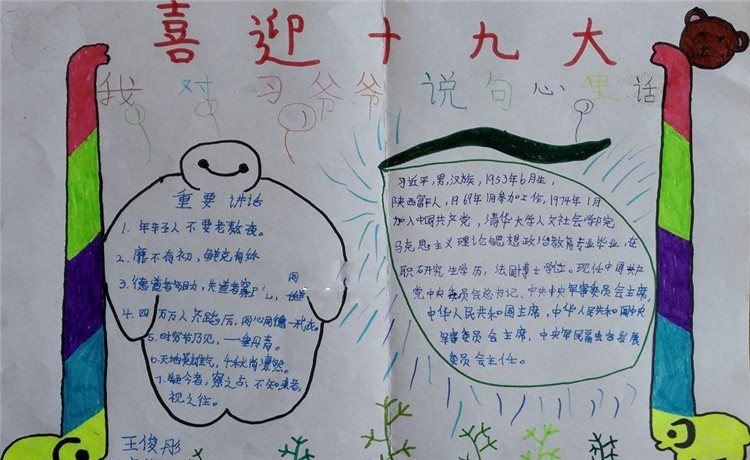 喜迎十九大
我对习爷爷说句心里话
重要讲话
1. 年轻人不要老熬夜。
2. 靡不有初,鲜克有终
3. 德道者 助,失道者寡
4. 四万万人 后,同心同德一
5. 时穷节乃见,一 丹青。
6. 天地英雄气,千秋尚凛然。
7. 疑今者,察之古,不知来者,
视之往。
王俊彤
习近平,男,汉族,1953年6月生,
陕西富 人,1969年1月参加工作,1974年1月
加入中国共产党,清华大学人文社会学院
马克思主义理论与思想政治教育专业毕业,在
职研究生学历,法 博士学位。现任中国共产
党中央委员会总书记、中共中央军事委员会主席,
中华人民共和国主席,中华人民共和国中央
军事委员会主席,中央军民 发展
委员会主任。